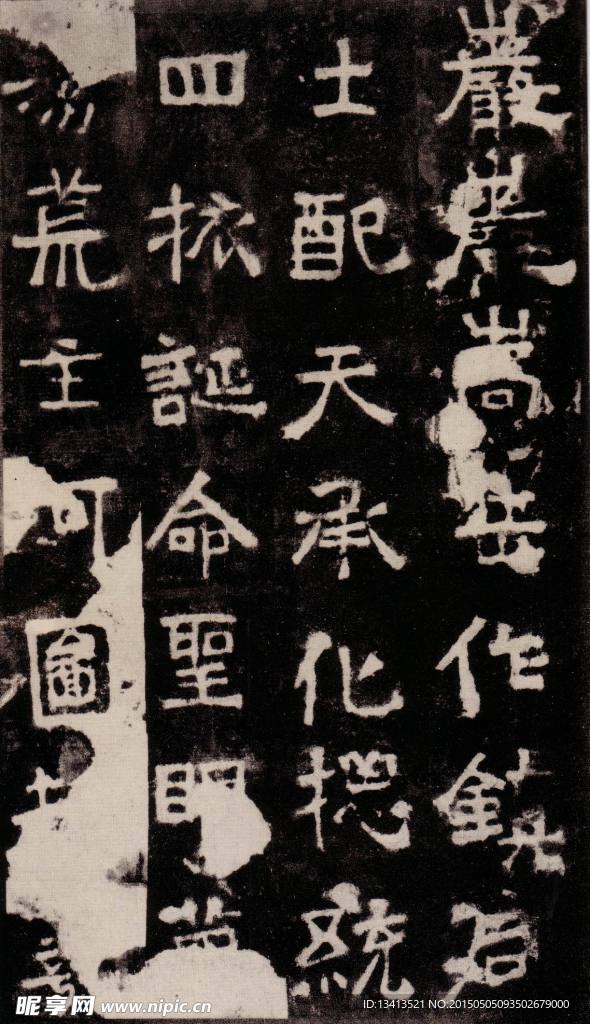 巖巖嵩岳作鎮后
土配天承化揔統
四誕命聖明
荒主河圖
昵享网 www.nipic.cn
ID:13413521 NO:20150505093502679000